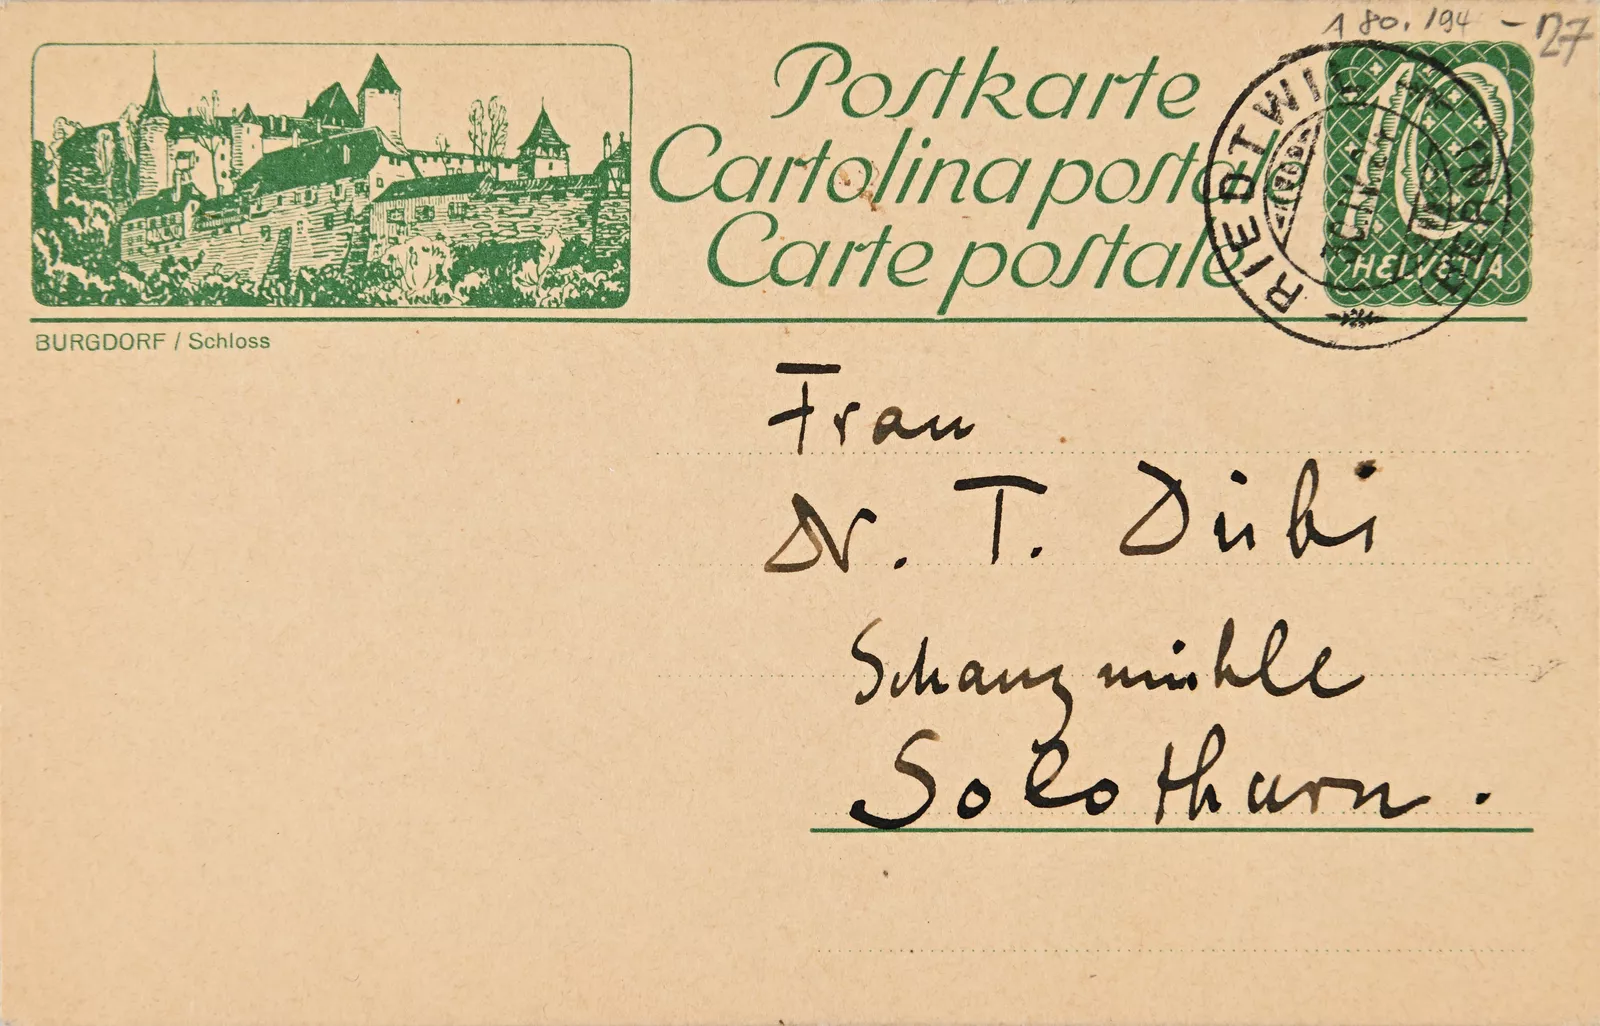 1 80.194 - 27
Postkarte
Cartolina postale
Carte postale
10
HELVETIA
RIEDTWIL (BERN)
BURGDORF / Schloss
Frau
Dr. T. Dübi
Schanzmühle
Solothurn.